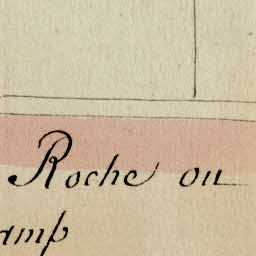 Roche ou
amp